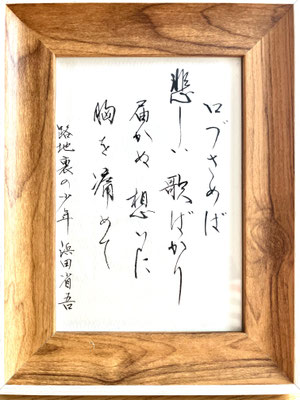 口ずさめば
悲しい歌ばかり
届かぬ想いに
胸を痛めて
路地裏の少年 浜田省吾